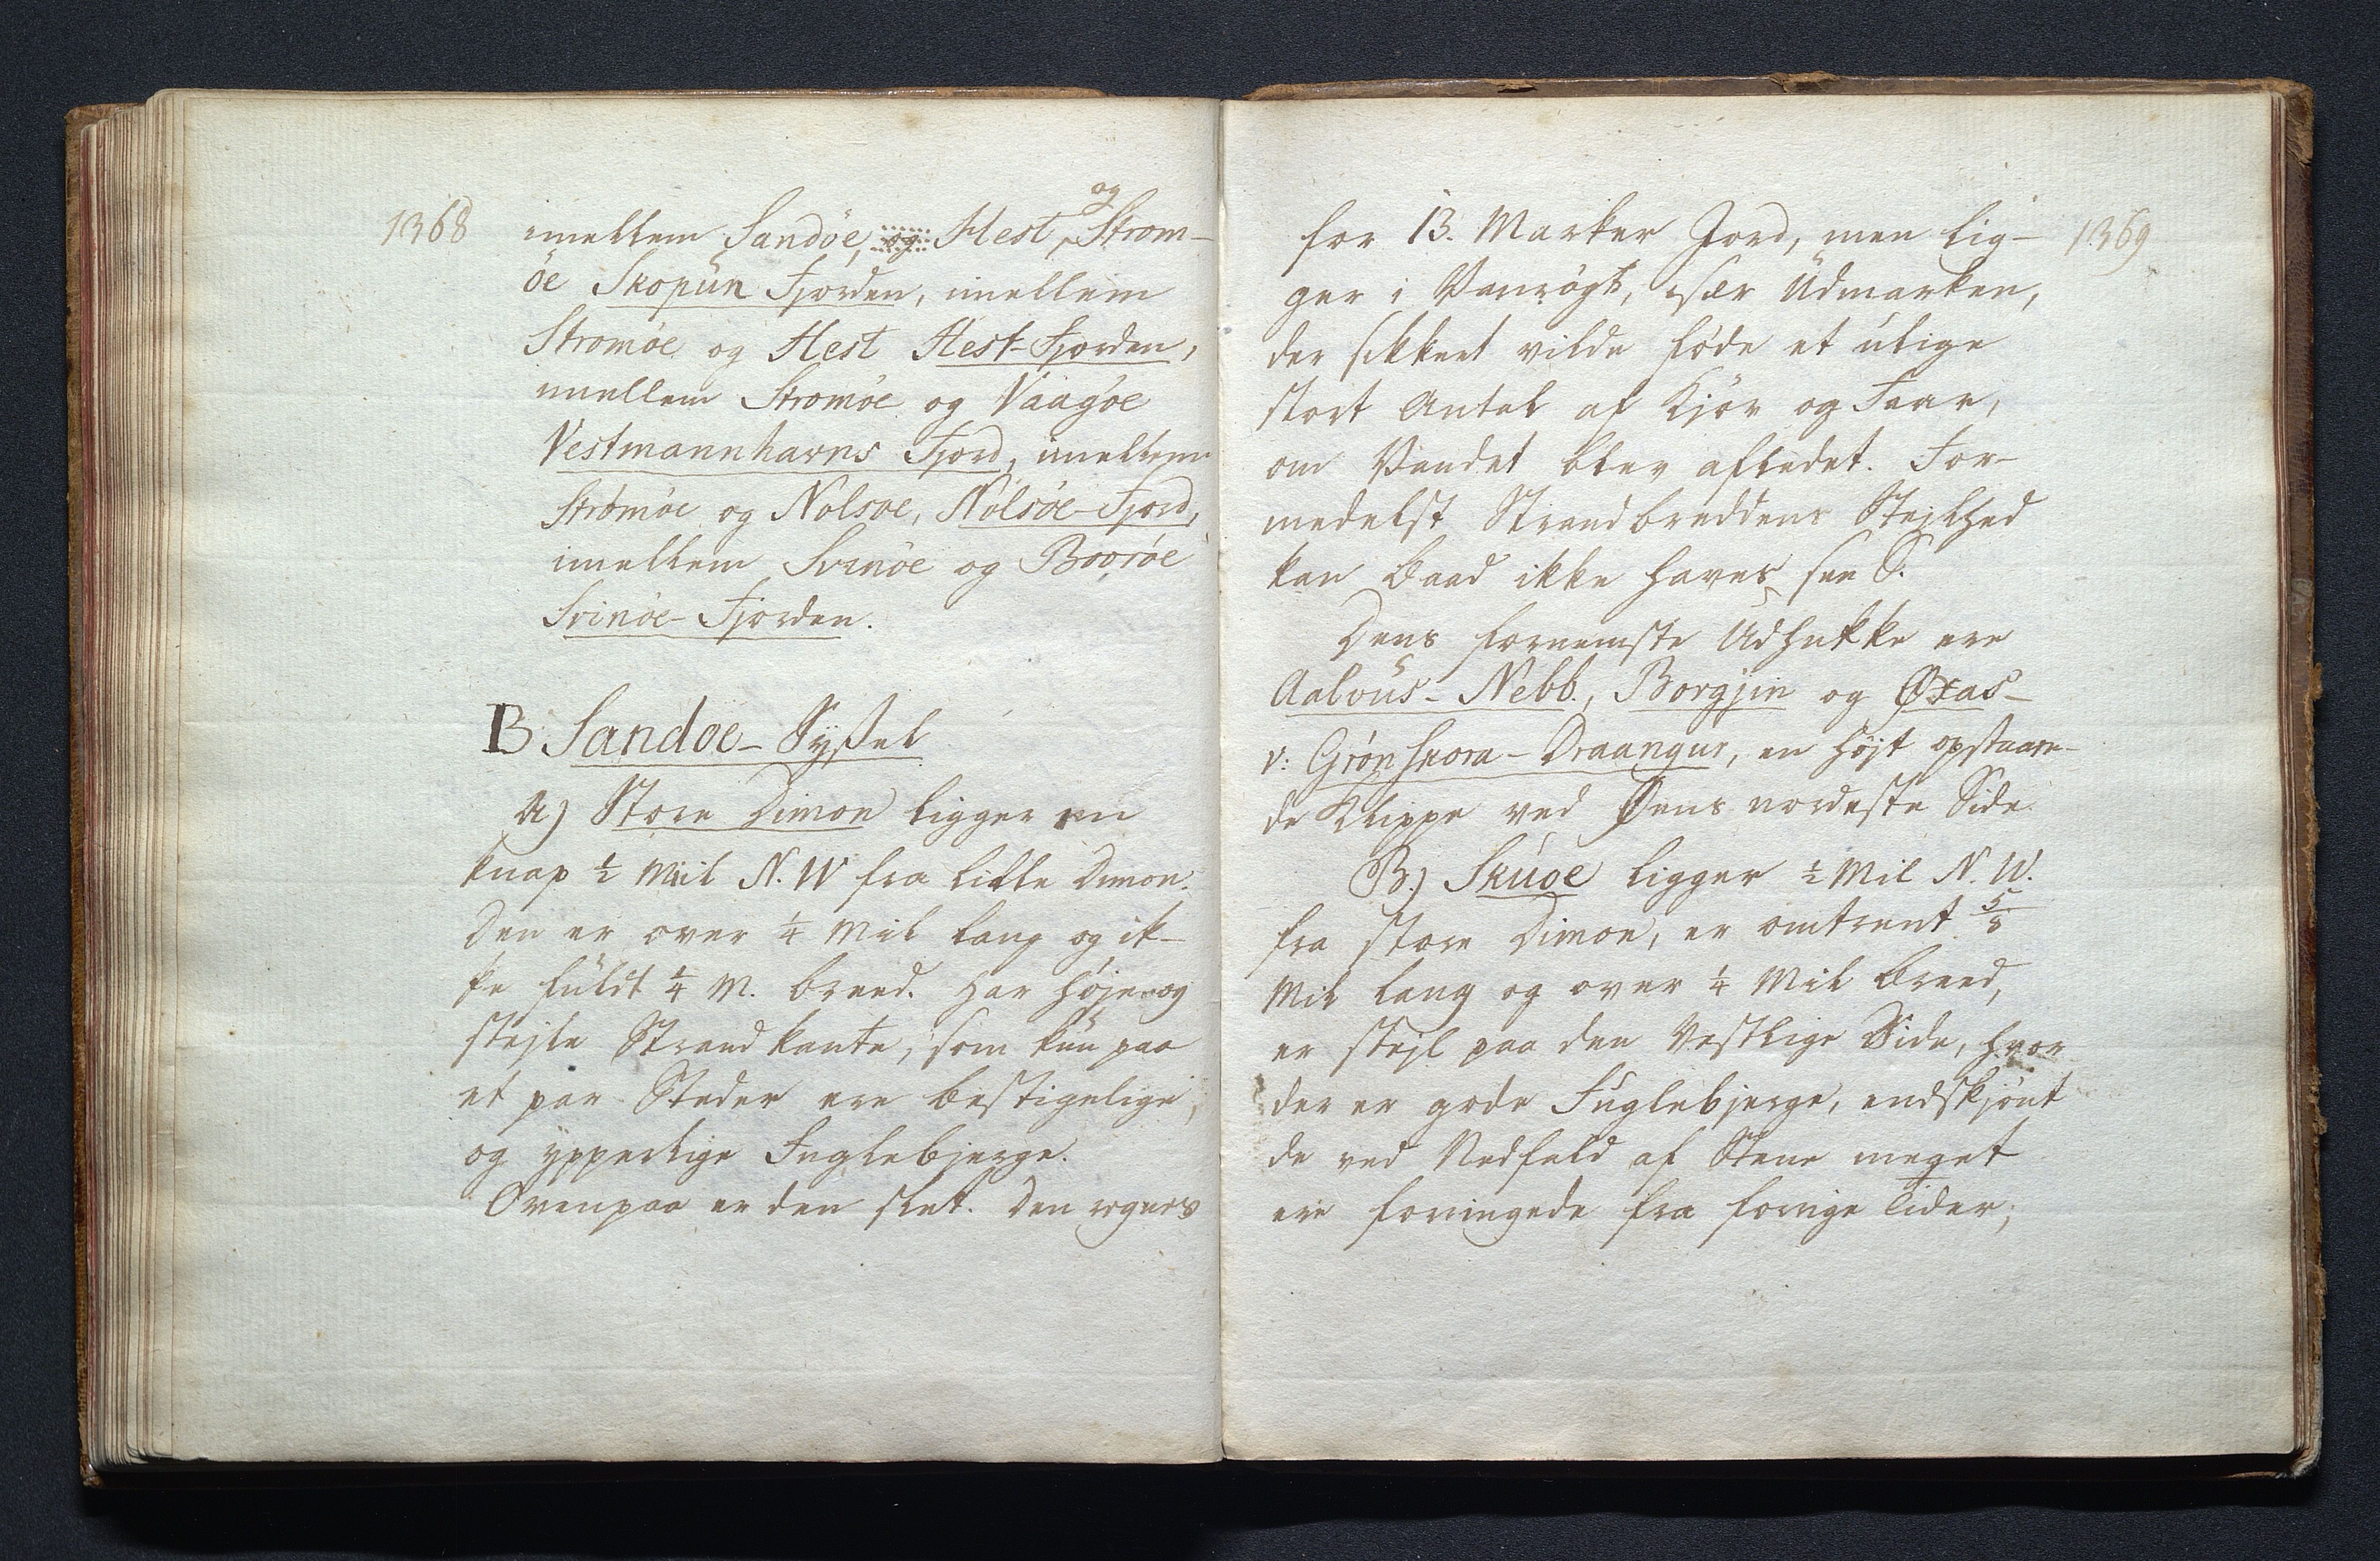 1368
imellem Sandöe, og Hest og Strom-
öe Skopun Fjorden, imellem
Stromöe og Hest Hest-Fjorden,
imellem Stromöe og Vaagöe
Vestmannhavns Fjord, imellem
Strömöe og Nolsöe, Nolsöe-Fjord,
imellem Svinöe og Boröe
Svinöe-Fjorden.
B Sandöe-Syßel
A) Store Dimon ligger en
knap ½ Miil N.W fra lille Dimon.
Den er over ¼ Mil lang og ik-
ke fuldt ¼ M. breed. Har höje og
stejle Strandkante, som kun paa
et par Steder ere bestigelige,
og ypperlige Fuglebjerge.
Ovenpaa er den slet. Den regnes
1369
for 13. Marker Jord, men lig-
ger i Vanrögt, især Udmarken,
der sikkert vilde föde et ulige
stort Antal af Kjör og Faar,
om Vandet blev afledet. For-
medelst Strandbreddens Stejlhed
kan Baad ikke haves, see S.
Dens fornemste Udhukke ere
Aalvus-Nebb., Borgjin og Øxas-
v: Grönskora-Draangur, en höjt opstaaen-
de Klippe ved Øens nordeste Side
B.) Skuöe ligger ½ Mil N.W.
fra store Dimon, er omtrent 5/8
Mil lang og over ¼ Mil breed,
er stejl paa den Vestlige Side, hvor
der er gode Fuglebjerge, endskjönt
de ved Nedfald af Stene meget
ere forringede fra forrige Tider;